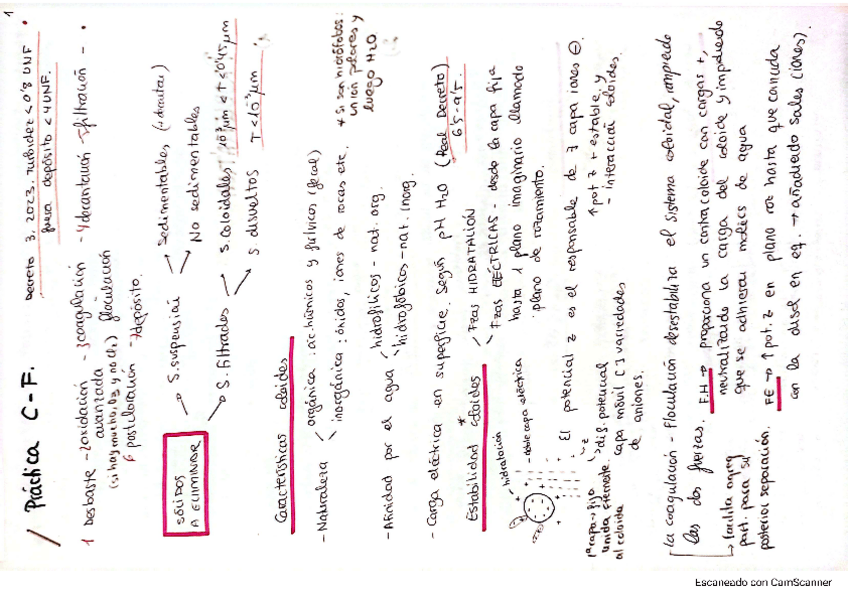 1
Práctica C-F.
Decreto 3, 2023. Turbidez < 0'8 UNF
fuera depósito < 4 UNF.
1 Desbaste - 2 oxidación - 3 coagulación - 4 decantación - 5 filtración -
avanzada floculación
(si hay mucho, O3 y no Cl2)
6 postcloración - 7 depósito.
SÓLIDOS A ELIMINAR
S. suspensión
Sedimentables (+ discretas)
No sedimentables
S. filtrados
S. coloidales 10⁻³µm < T < 0'45µm
S. disueltos T < 10⁻³µm
Características coloides
- Naturaleza
orgánica: ac. húmicos y fúlvicos (fecal)
inorgánica: óxidos, iones de rocas etc.
* Si son hidrófobos:
unión polares y
luego H2O.
- Afinidad por el agua
hidrofílicos - nat. org.
hidrofóbicos - nat. inorg.
- Carga eléctrica en superficie. Según pH H2O (Real Decreto)
6'5-9'5.
Estabilidad coloides
Fzas HIDRATACIÓN
Fzas ELÉCTRICAS - desde la capa fija
hasta 1 plano imaginario llamado
plano de rozamiento.
hidratación
doble capa eléctrica
El potencial z es el responsable de
↑ pot z + estable y
- interacción coloides.
1ª capa → fija
unida fuertemente
al coloide
dif. potencial
capa móvil [ ] variedades
de aniones.
La coagulación - Floculación desestabiliza el sistema coloidal, rompiendo
las dos fuerzas.
→ facilita agreg.
part. para su
posterior separación.
F.H → proporciona un contracoloide con cargas +,
neutralizando la carga del coloide y impidiendo
que se adhieran molecs de agua
FE → ↑ pot. z en plano roz hasta que coincida
con la disol en eq. → añadiendo sales (iones).
Escaneado con CamScanner